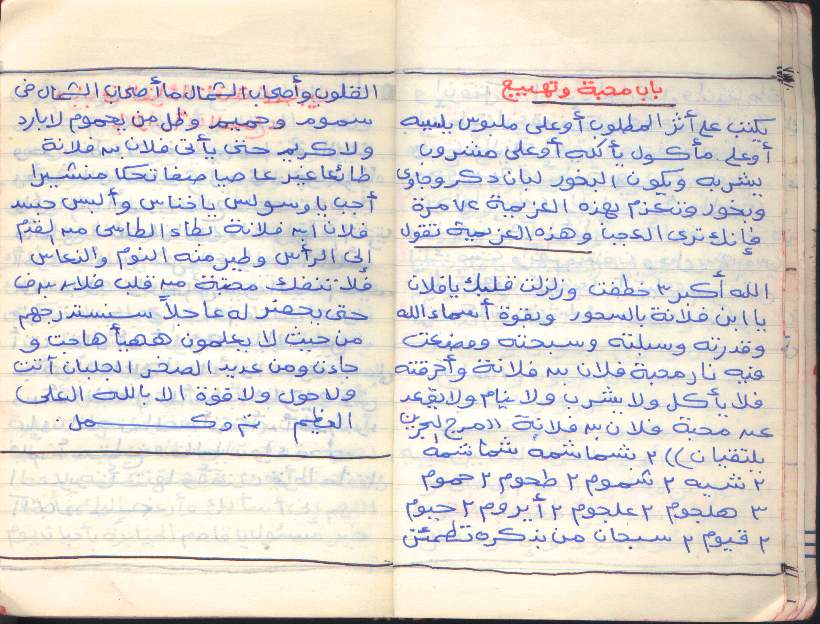 باب محبة وتهييج
يكتب على أثر المطلوب أو على ملبوس يلبسه
أو على مأكول يأكله أو على مشروب
يشربه ويكون البخور لبان دكر وجاوى
وبخور وتعزم بهذه العزيمة ٧٤ مرة
فإنك ترى العجب وهذه العزيمة تقول
الله أكبر ٣ خطفت وزلزلت قلبك يا فلان
يا ابن فلانة بالسحور وبقوة أسماء الله
وقدرته وسبلته وسبحته ووضعت
فيه نار محبة فلان به فلانة وأحرقته
فلا يأكل ولا يشرب ولا ينام ولا يقعد
عن محبة فلان به فلانة ((مرج البحرين
يلتقيان)) ٢ شما شمه شما شمه
٢ شيه ٢ شموم ٢ طحوم ٢ حموم
٣ هلجوم ٢ علجوم ٢ أيروم ٢ حيوم
٢ قيوم ٢ سبحان من بذكره تطمئن
القلوب وأصحاب الشمال ما أصحاب الشمال فى
سموم وحميم وظل من يحموم لا بارد
ولا كريم حتى يأتى فلان به فلانة
طائعا غير عاصيا
أجب يا وسواس يا خناس وألبس جسد
فلان ابن فلانة من القدم
الى الرأس وطير منه النوم والنعاس
فلا تنفك محبة من قلب فلان به ف
حتى يحضر له عاجلا سنستدرجهم
من حيث لا يعلمون ههيأ هاجت و
جاءت ومن عديد الصخر الجلبان آتت
ولا حول ولا قوة الا بالله العلى
العظيم تم وكمل